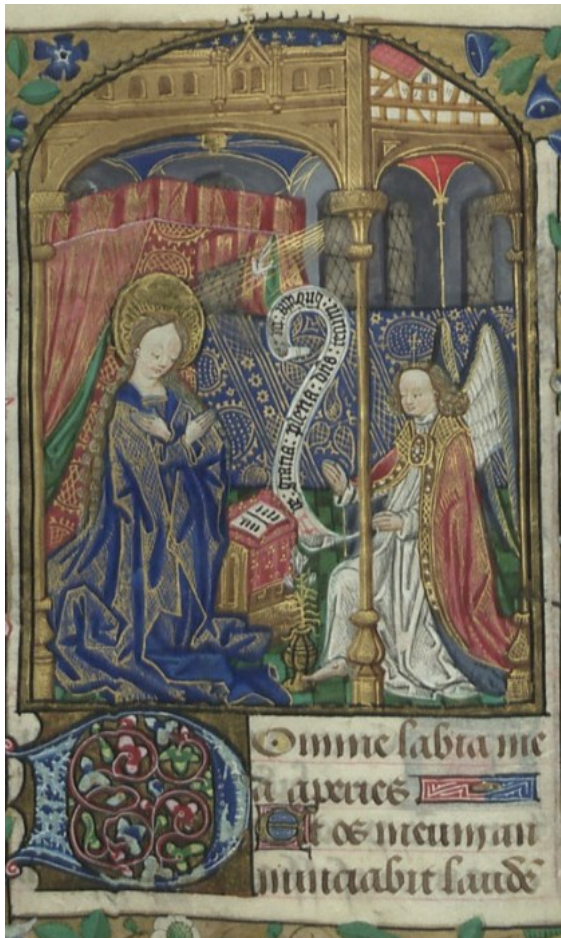 gracia: plena: dn̄s:
Domine labia me
a aperies
Et os meum an
nunciabit laudē